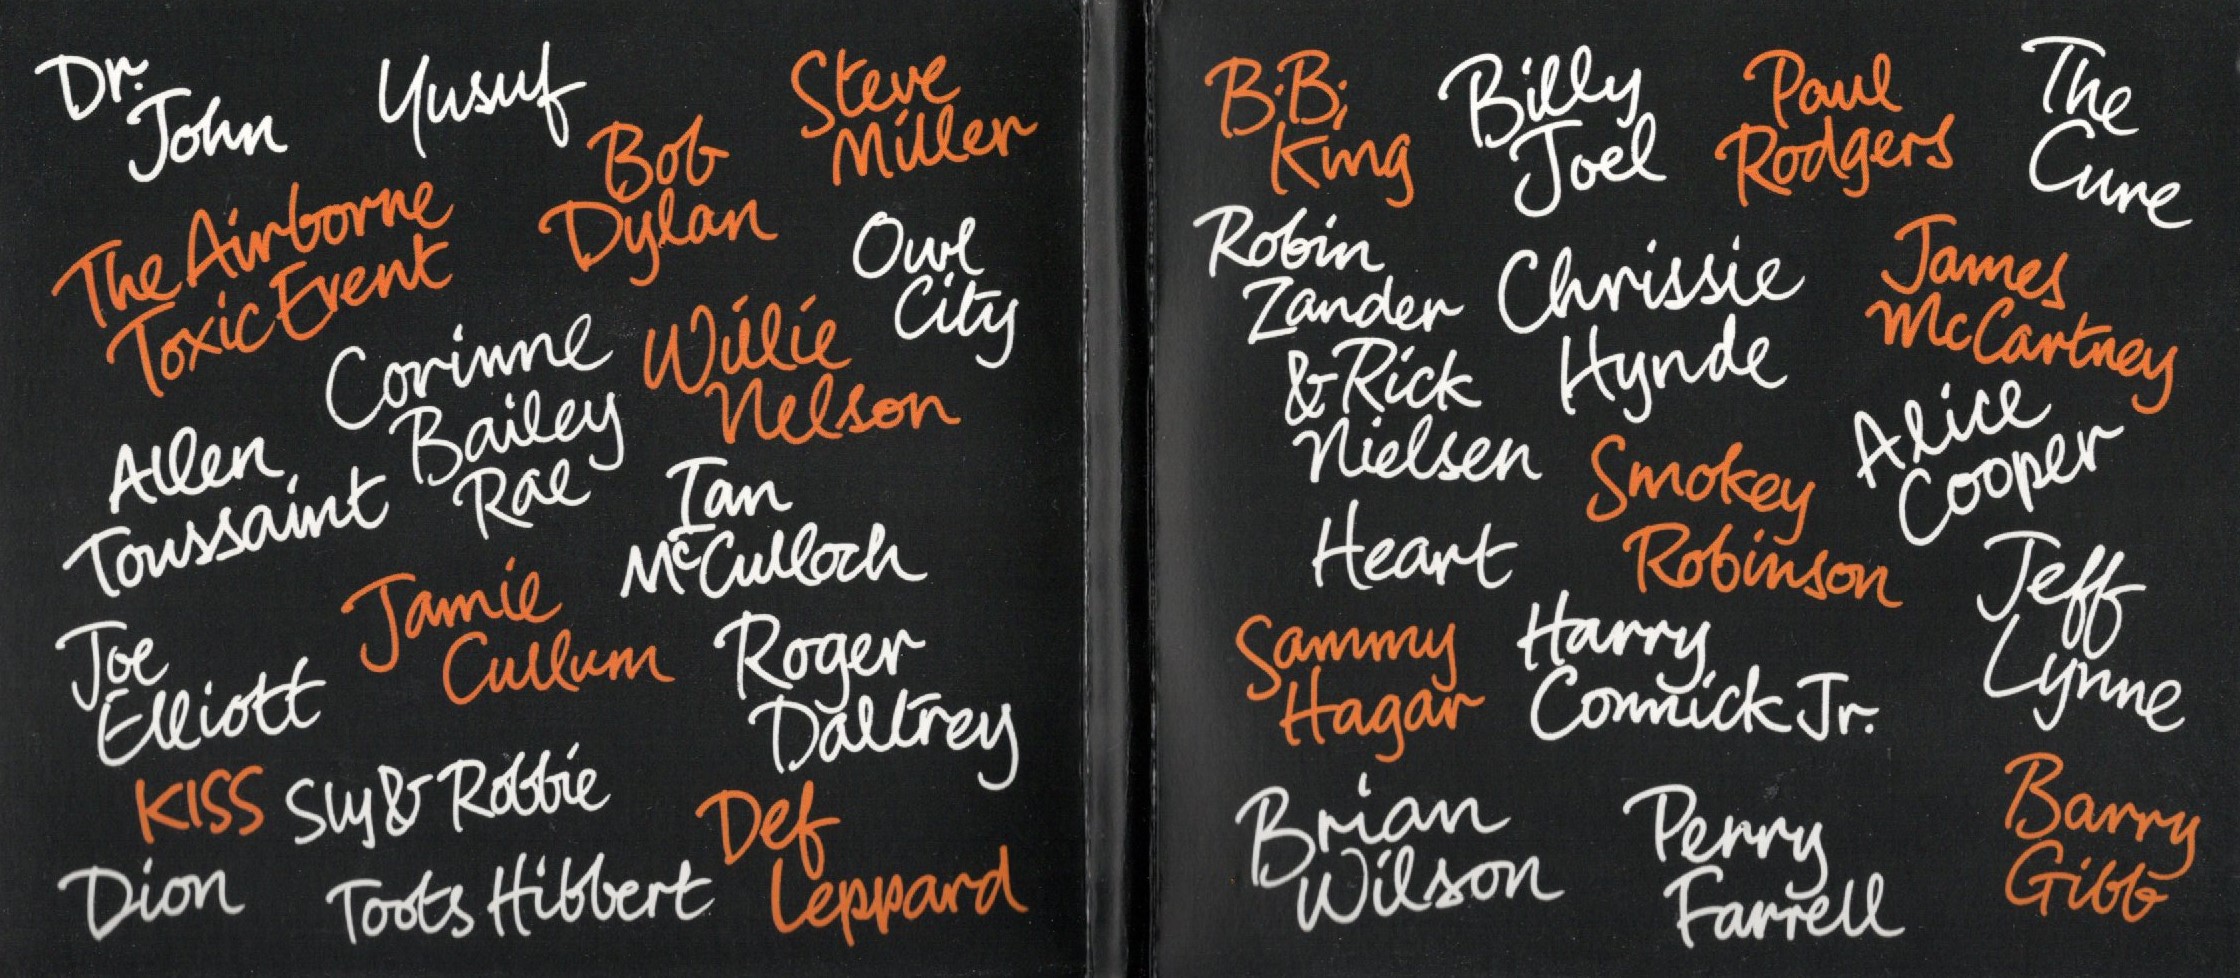 Dr.
John
Yusuf
Bob
Dylan
Steve
Miller
The Airborne
Toxic Event
Owl
City
Corinne
Bailey
Rae
Willie
Nelson
Allen
Toussaint
Ian
McCulloch
Jamie
Cullum
Joe
Elliott
Roger
Daltrey
KISS
Sly & Robbie
Def
Leppard
Dion
Toots Hibbert
B.B.
King
Billy
Joel
Paul
Rodgers
The
Cure
Robin
Zander
& Rick
Nielsen
Chrissie
Hynde
James
McCartney
Alice
Cooper
Smokey
Robinson
Heart
Jeff
Lynne
Sammy
Hagar
Harry
Connick Jr.
Brian
Wilson
Perry
Farrell
Barry
Gibb